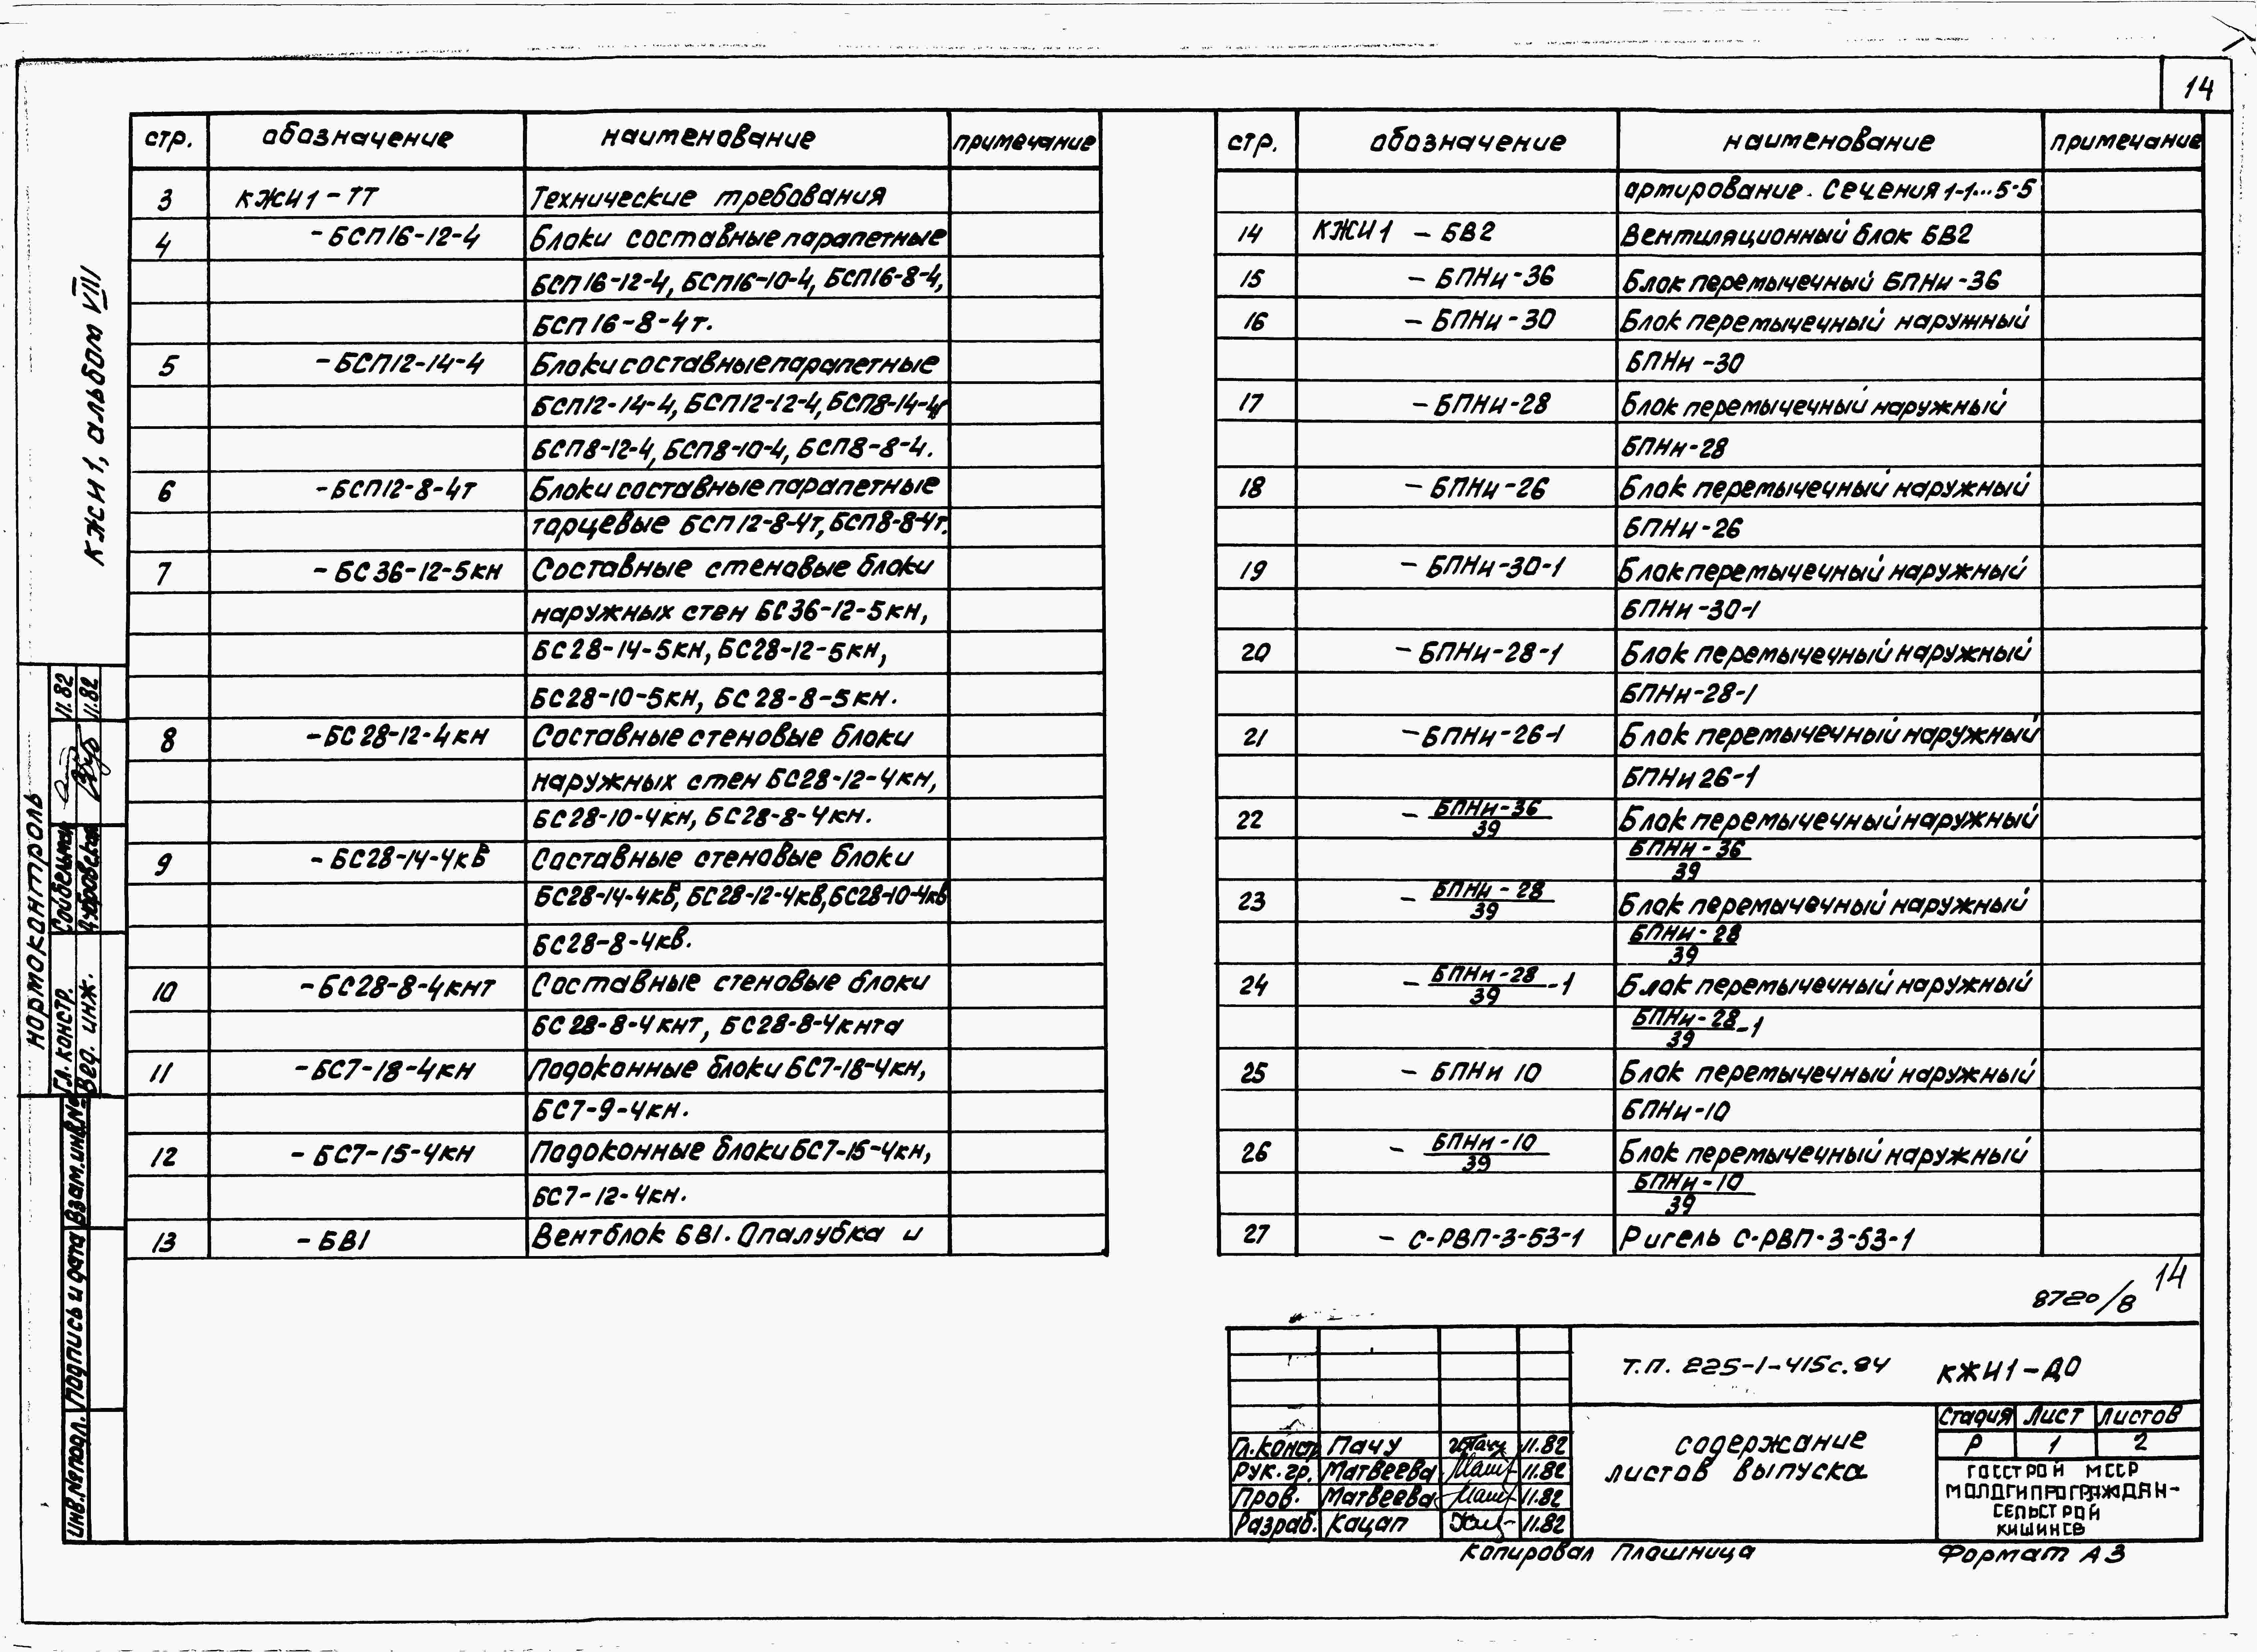 14
стр. обозначение наименование примечание
3 КЖИ1-ТТ Технические требования
4 -БСП16-12-4 Блоки составные парапетные
БСП16-12-4, БСП16-10-4, БСП16-8-4,
БСП16-8-4т.
5 -БСП12-14-4 Блоки составные парапетные
БСП12-14-4, БСП12-12-4, БСП8-14-4,
БСП8-12-4, БСП8-10-4, БСП8-8-4.
6 -БСП12-8-4т Блоки составные парапетные
торцевые БСП12-8-4т, БСП8-8-4т.
7 -БС36-12-5кн Составные стеновые блоки
наружных стен БС36-12-5кн,
БС28-14-5кн, БС28-12-5кн,
БС28-10-5кн, БС28-8-5кн.
8 -БС28-12-4кн Составные стеновые блоки
наружных стен БС28-12-4кн,
БС28-10-4кн, БС28-8-4кн.
9 -БС28-14-4кв Составные стеновые блоки
БС28-14-4кв, БС28-12-4кв, БС28-10-4кв
БС28-8-4кв.
10 -БС28-8-4кнт Составные стеновые блоки
БС28-8-4кнт, БС28-8-4кнта
11 -БС7-18-4кн Подоконные блоки БС7-18-4кн,
БС7-9-4кн.
12 -БС7-15-4кн Подоконные блоки БС7-15-4кн,
БС7-12-4кн.
13 -БВ1 Вентблок БВ1. Опалубка и
стр. обозначение наименование примечание
армирование. Сечения 1-1...5-5
14 КЖИ1 -БВ2 Вентиляционный блок БВ2
15 -БПНи-36 Блок перемычечный БПНи-36
16 -БПНи-30 Блок перемычечный наружный
БПНи-30
17 -БПНи-28 Блок перемычечный наружный
БПНи-28
18 -БПНи-26 Блок перемычечный наружный
БПНи-26
19 -БПНи-30-1 Блок перемычечный наружный
БПНи-30-1
20 -БПНи-28-1 Блок перемычечный наружный
БПНи-28-1
21 -БПНи-26-1 Блок перемычечный наружный
БПНи26-1
22 -БПНи-36/39 Блок перемычечный наружный
БПНи-36/39
23 -БПНи-28/39 Блок перемычечный наружный
БПНи-28/39
24 -БПНи-28/39-1 Блок перемычечный наружный
БПНи-28/39-1
25 -БПНи 10 Блок перемычечный наружный
БПНи-10
26 -БПНи-10/39 Блок перемычечный наружный
БПНи-10/39
27 -С-РВП-3-53-1 Ригель С-РВП-3-53-1
14
8720/8
т.п. 225-1-415с.84 КЖИ1-ДО
содержание
листов выпуска
Стадия Лист Листов
Р 1 2
Госстрой МССР
Молдгипрограждан-
сельстрой
Кишинев
Гл.констр Пачу 11.82
Рук.гр. Матвеева 11.82
Пров. Матвеева 11.82
Разраб. Кацап 11.82
Копировал Плошница Формат А3
КЖИ1, альбом VIII
нормоконтроль
Гл. констр. 11.82
Вед. инж. Дубровская 11.82
Взам.инв№
Подпись и дата
Инв.№подл.